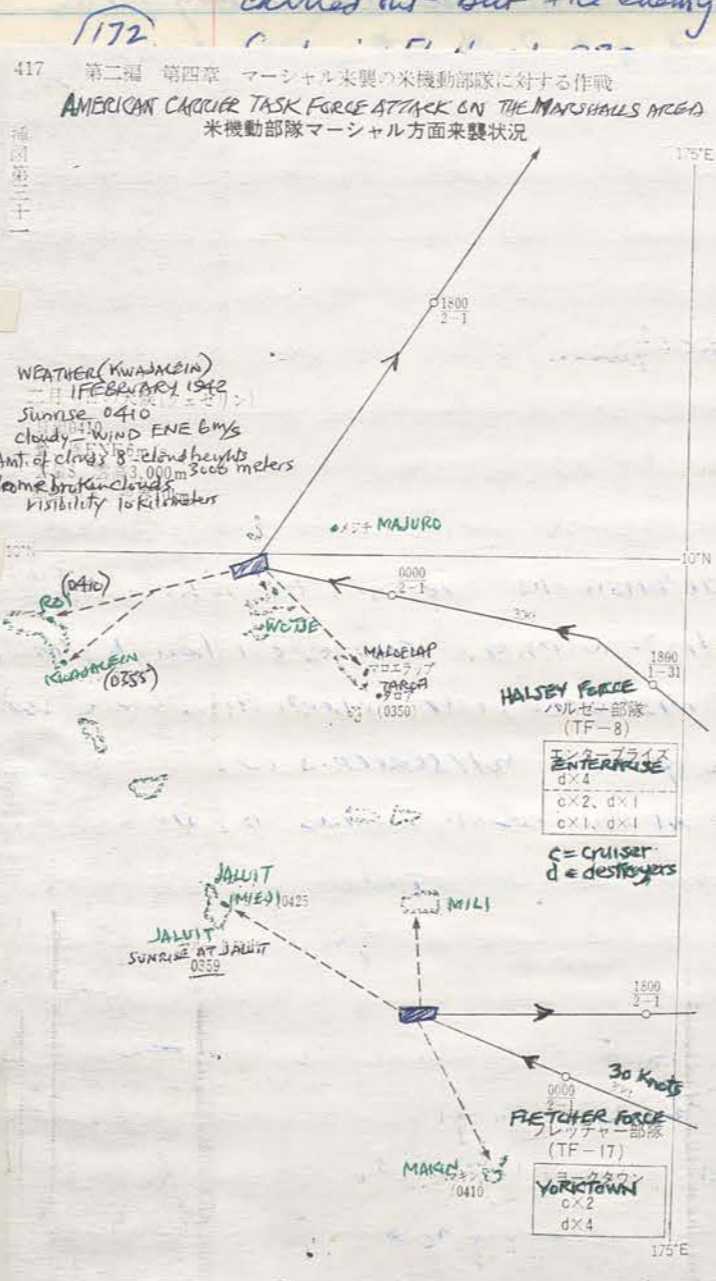 carried out but the enemy
172
417 第二編 第四章 マーシャル来襲の米機動部隊に対する作戦
AMERICAN CARRIER TASK FORCE ATTACK ON THE MARSHALLS AREA
米機動部隊マーシャル方面来襲状況
挿図第三十一
175°E
1800
2-1
WEATHER (KWAJALEIN)
1 FEBRUARY 1942
Sunrise 0410
cloudy - WIND ENE 6m/s
Amt. of clouds 8 - cloud heights
3,000m 3000 meters
some broken clouds
visibility 10 kilometers
メジチ MAJURO
10°N
10°N
0000
2-1
(0410)
ROI
WOTJE
KWAJALEIN
(0355)
MALOELAP
マロエラップ
TAROA
タロア
(0350)
1800
1-31
HALSEY FORCE
ハルゼー部隊
(TF-8)
エンタープライズ
ENTERPRISE
d×4
c×2、d×1
c×1、d×1
c = cruiser
d = destroyers
JALUIT
(MIEJI) 0425
MILI
JALUIT
SUNRISE AT JALUIT
0359
1800
2-1
30 Knots
0000
2-1
FLETCHER FORCE
フレッチャー部隊
(TF-17)
MAKIN
マキン
(0410
ヨークタウン
YORKTOWN
c×2
d×4
175°E